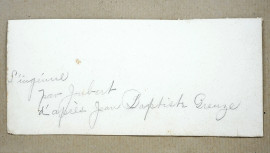 L'ingénue
par Jacbert
d'après Jean Baptiste Greuze